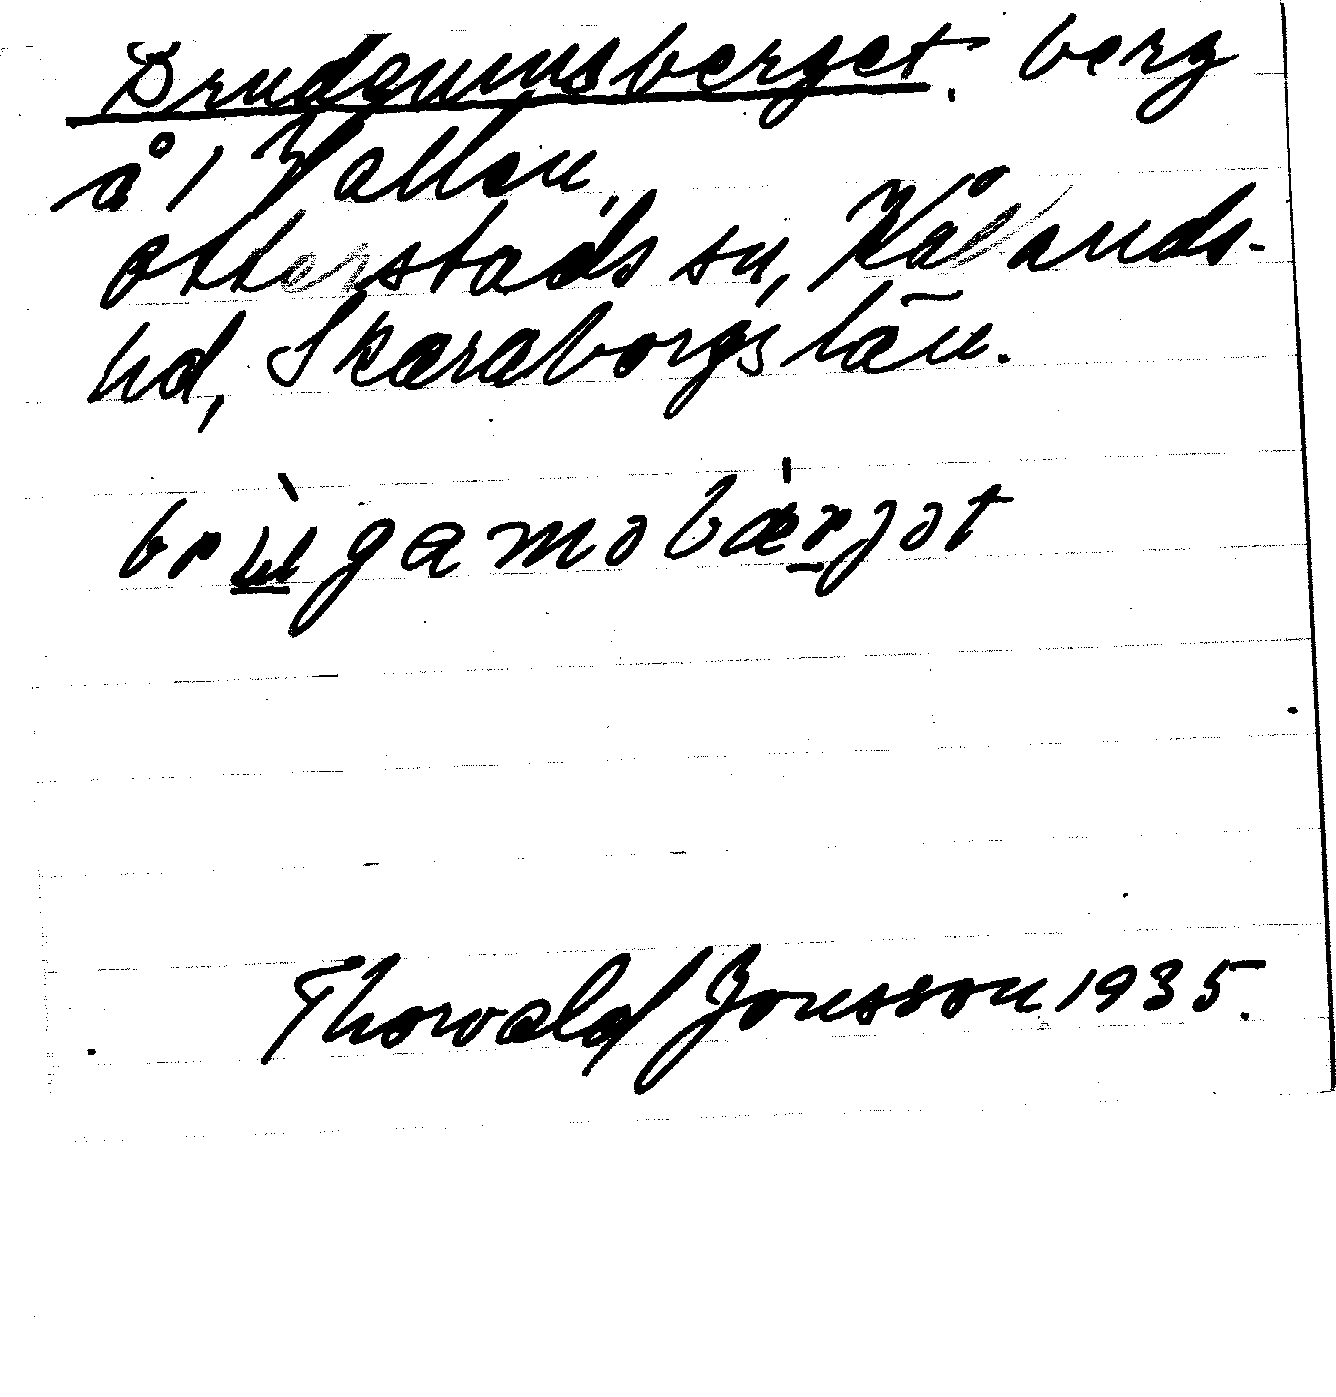 Brudgumsberget. berg
å 1 Hallen,
Otterstads sn, Kållands-
hd, Skaraborgs län.
brùgaməbæ̍rjət
Thorvald Jonsson 1935.